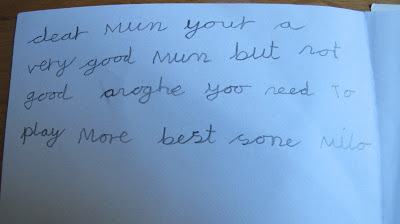 dear Mum your a
very good Mum but not
good anoghe yoo need To
play More best sone Milo